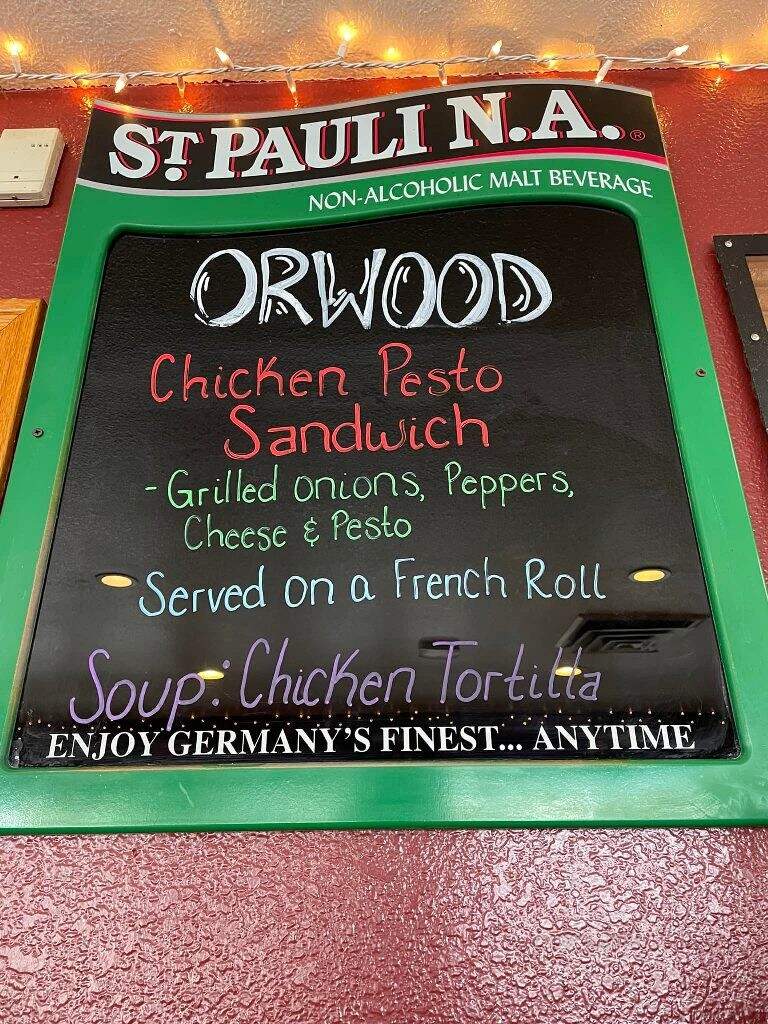 ST. PAULI N.A.®
NON-ALCOHOLIC MALT BEVERAGE
ORWOOD
Chicken Pesto
Sandwich
- Grilled onions, Peppers,
Cheese & Pesto
Served on a French Roll
Soup: Chicken Tortilla
ENJOY GERMANY'S FINEST... ANYTIME